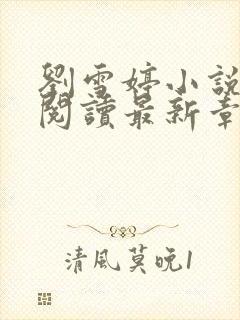 劉雪婷小說
閱讀最新章
清風莫晚1